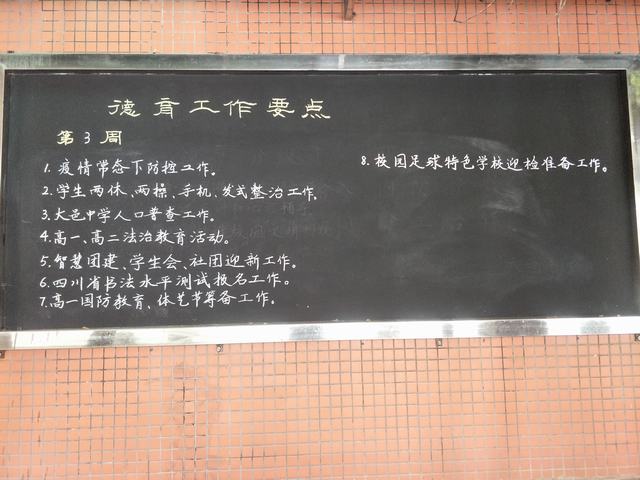 德育工作要点
第3周
1. 疫情常态下防控工作。
2. 学生两休、两操、手机、发式整治工作。
3. 大邑中学人口普查工作。
4. 高一、高二法治教育活动。
5. 智慧团建、学生会、社团迎新工作。
6. 四川省书法水平测试报名工作。
7. 高一国防教育、体艺节筹备工作。
8. 校园足球特色学校迎检准备工作。